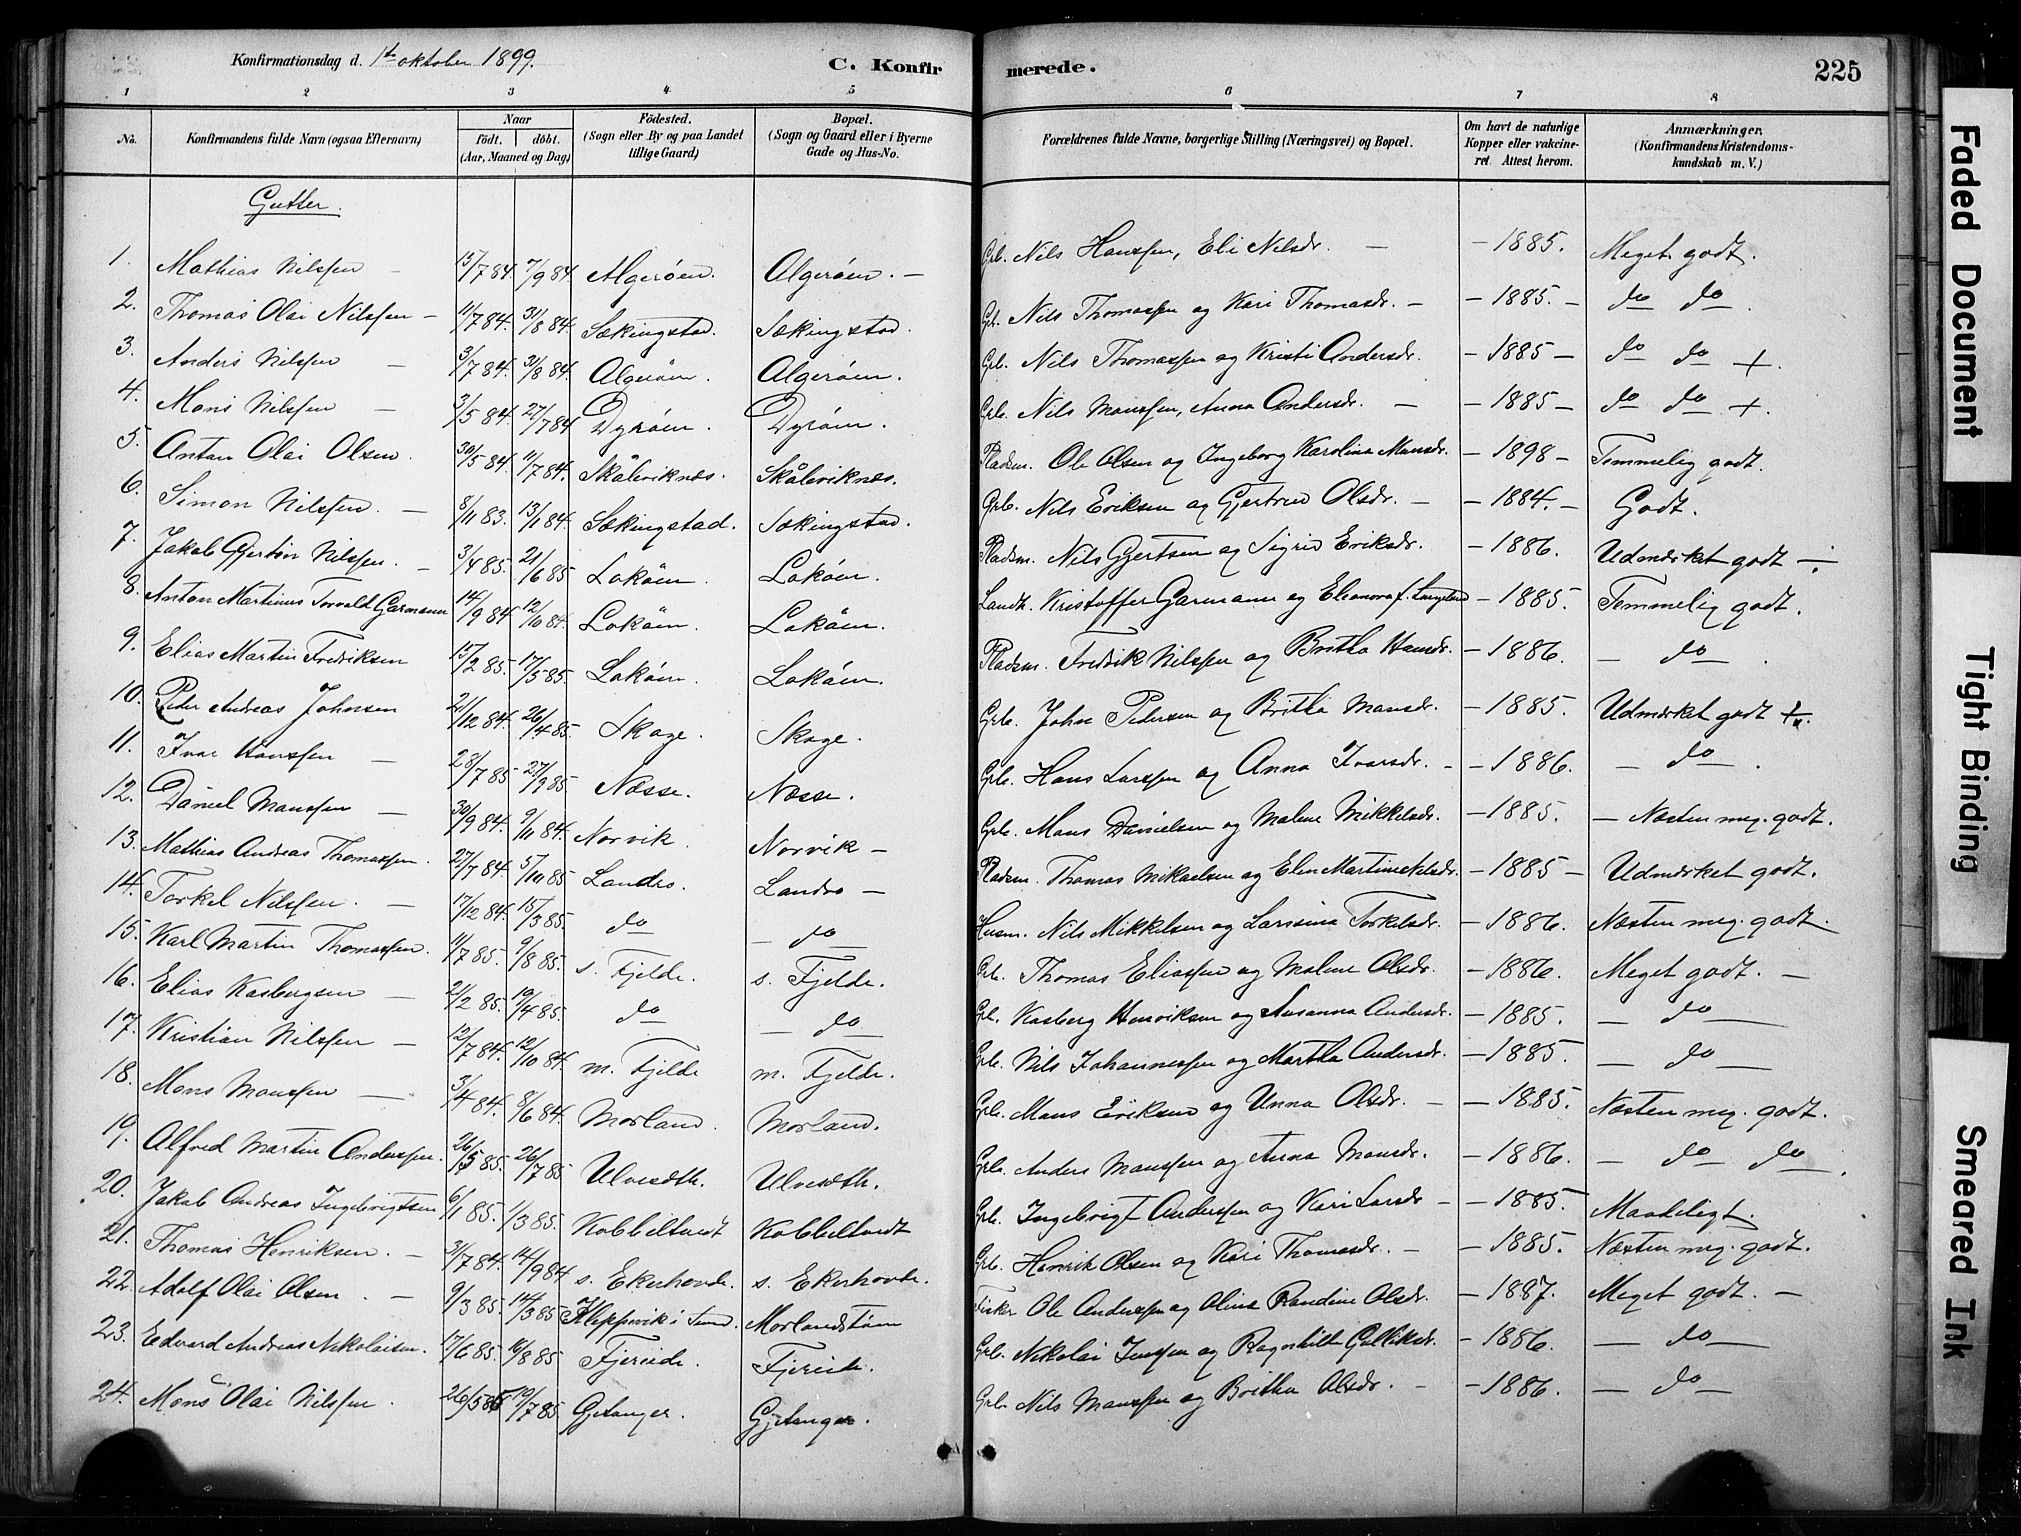 Konfirmationsdag d. 1ste oktober 1899.
C. Konfirmerede.
225
1 2 3 4 5 6 7 8
No. Konfirmandens fulde Navn (ogsaa Efternavn) Naar født. døbt. (Aar, Maaned og Dag) Fødested. (Sogn eller By og paa Landet tillige Gaard) Bopæl. (Sogn og Gaard eller i Byerne Gade og Hus-No. Forældrenes fulde Navne, borgerlige Stilling (Næringsvei) og Bopæl. Om havt de naturlige Kopper eller vakcineret. Attest herom. Anmærkninger. (Konfirmandens Kristendomskundskab m. V.)
Gutter.
1. Mathias Nilssen – 15/7 84 7/9 84 Algerøen. Algerøen. – Grb. Nils Hanssen, Eli Nilsdr. – – 1885. Meget godt.
2. Thomas Olai Nilssen – 11/7 84. 31/8 84. Sækingstad. Sækingstad. Gb. Nils Thomassen og Kari Thomasdr. – – 1885. – do do
3. Anders Nilssen – 3/7 84. 31/8 84. Algerøen. Algerøen. Grb. Nils Thomassen og Kristi Andersdr. – 1885 – do do +.
4. Mons Nilssen – 3/5 84. 27/7 84 Dyrøen. Dyrøen. Grb. Nils Monssen, Anna Andersdr. – – 1885 – do do +.
5. Anton Olai Olsen. 30/5 84. 11/7 84. Skåleviknes. Skåleviknes. Pladsm. Ole Olsen og Ingeborg Karolina Monsdr. – 1898 – Temmelig godt.
6. Simon Nilssen. – 8/11 83. 13/1 84. Sækingstad. Sækingstad. Grb. Nils Eriksen og Gjertrud Olsdr. – – 1884. – Godt.
7. Jakob Gjertin Nilssen. – 3/4 85. 21/6 85 Lokøen. Lokøen. Pladsm. Nils Gjertsen og Sigrid Eriksdr. – 1886. Udmærket godt
8. Anton Martinus Torvald Garmann 14/9 84 12/10 84. Lokøen. Lokøen. Landh. Kristoffer Garmann og Eleonora f. Langeland – 1885. Temmelig godt.
9. Elias Martin Fredriksen 15/2 85. 17/5 85. Lokøen. Lokøen. Pladsm. Fredrik Nilssen og Britha Hansdr. – 1886. – do – .
10. Peder Andreas Johnsen 21/12 84. 26/4 85. Skoge. Skoge. Grb. John Pedersen og Britha Monsdr. – 1885. Udmærket godt +.
11. Ivar Hanssen – 28/7 85 27/9 85. Næsse. Næsse. Grb. Hans Larssen og Anna Ivarsdr. – – 1886. – do – .
12. Daniel Monssen – 30/9 84. 9/11 84. Norvik. Norvik – Grb. Mons Danielsen og Malene Mikkelsdr. – 1885. – Næsten meg. godt.
13. Mathias Andreas Thomassen. 27/7 84. 5/10 85 Landro. Landro – Pladsm. Thomas Mikaelsen og Elen Martine Nilsdr. – 1885 – Udmærket godt.
14. Torkel Nilssen. – 17/12 84. 15/3 85. do – do Husm. Nils Mikkelsen og Larsina Torkelsdr. – 1886. Næsten meg. godt.
15. Karl Martin Thomassen. 11/7 85. 9/8 85. s. Fjelde. s. Fjelde. Grb. Thomas Eliassen og Malene Olsdr. – 1886. Meget godt. –
16. Elias Kasbergsen – 21/2 85. 19/4 85. do – do Grb. Kasberg Henriksen og Susanna Andersdr. – 1885. – do –
17. Kristian Nilssen – 12/7 84. 12/10 84. m. Fjelde m. Fjelde. Grb. Nils Johannessen og Martha Andersdr. – 1885. – do –
18. Mons Monssen – 3/4 84. 8/6 84. Morland. Morland. Grb. Mons Eriksen og Unna Olsdr. – – 1885. Næsten meg. godt.
19. Alfred Martin Anderssen. 26/5 85. 26/7 85. Ulvesdth. Ulvesdth. Grb. Anders Monssen og Anna Monsdr. – 1886. – do do.
20. Jakob Andreas Ingebrigtsen 6/1 85. 1/3 85. Kobbeltvedt Kobbeltvedt Grb. Ingebrigt Anderssen og Kari Larsdr – – 1885. Maadeligt.
21. Thomas Henriksen. – 31/7 84. 14/9 84 s. Ekerhovde. s. Ekerhovde. Grb. Henrik Olsen og Kari Thomasdr. – – 1885. Næsten meg. godt.
22. Adolf Olai Olsen. – 9/3 85. 14/3 85 Kleppevik i Sund. Morlandstøen Fisker Ole Anderssen og Oline Randine Olsdr. – 1887. Meget godt. –
23. Edvard Andreas Nikolaisen. 17/6 85. 16/8 85 Fjereide. Fjereide. Grb. Nikolai Jenssen og Ragnhilda Gulliksdr. – 1886. – do –
24. Mons Olai Nilssen. 26/5 85 19/7 85 Gjetanger. Gjetanger. Grb. Nils Monssen og Britha Olsdr. – – 1886. – do –
Faded Document
Tight Binding
Smeared Ink